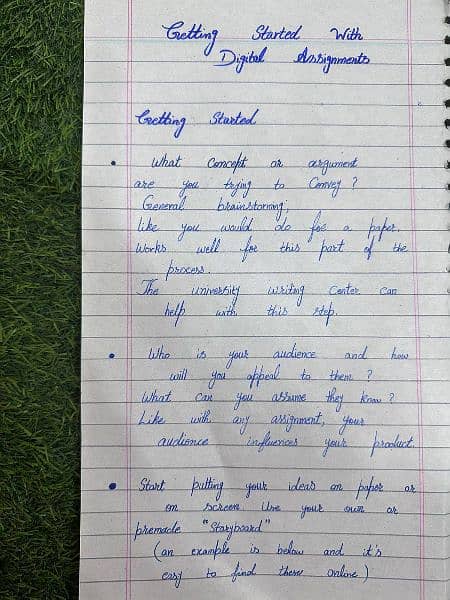 Getting Started With
Digital Assignments
Getting Started
• What concept or argument
are you trying to Convey ?
General brainstorming,
like you would do for a paper.
Works well for this part of the
process.
The university writing Center can
help with this step.
• Who is your audience and how
will you appeal to them ?
What can you assume they know ?
Like with any assignment, your
audience influences your product.
• Start putting your ideas on paper or
on screen Use your own or
premade "Storyboard"
(an example is below and it's
easy to find them online)